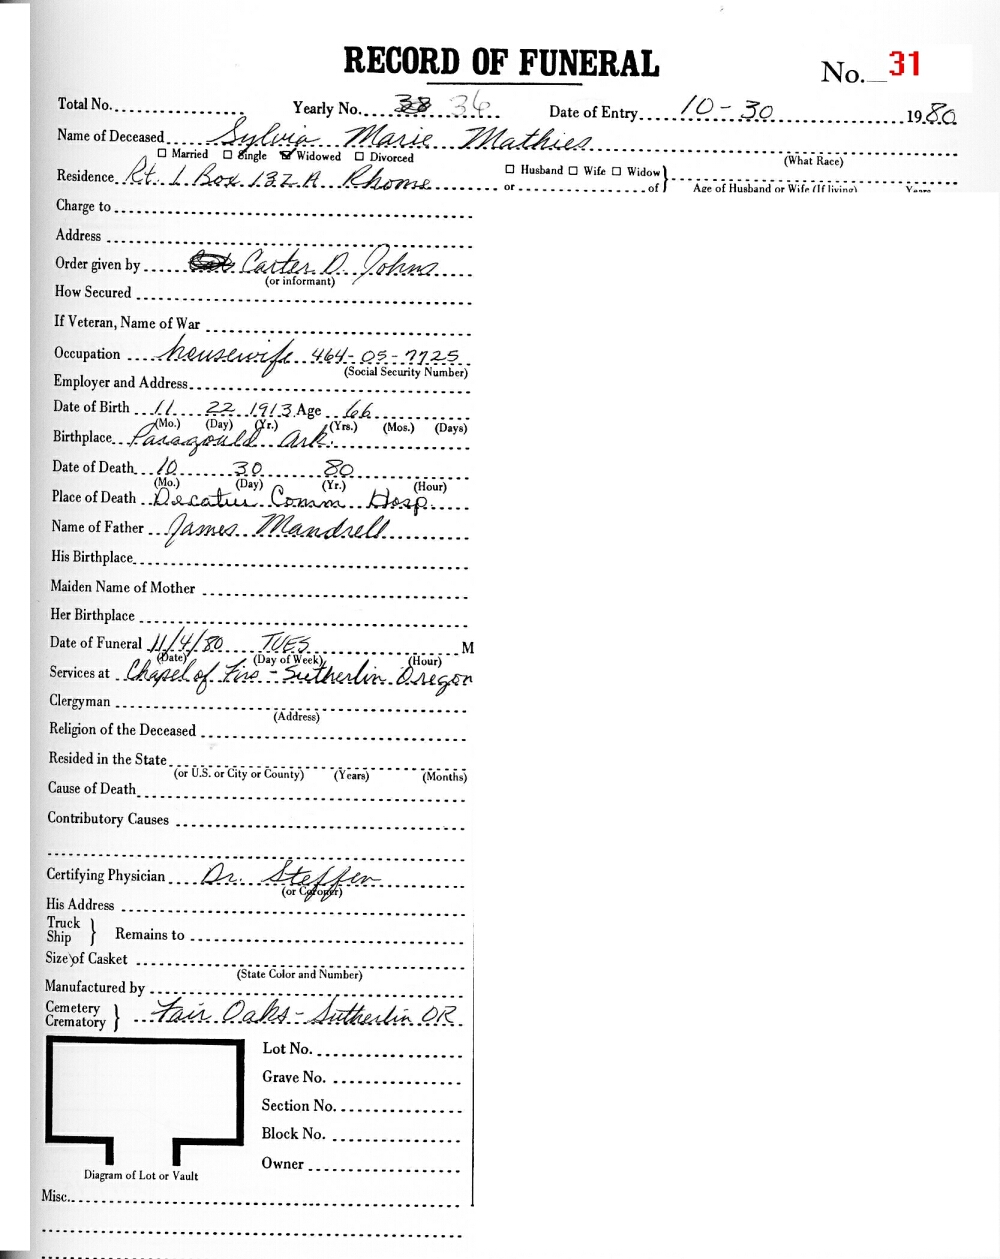 RECORD OF FUNERAL
No. 31
Total No. Yearly No. 36 Date of Entry 10-30 1980
Name of Deceased Sylvia Marie Mathies
☐ Married ☐ Single ☑ Widowed ☐ Divorced (What Race)
Residence Rt. 1 Box 132A Rhome ☐ Husband ☐ Wife ☐ Widow }
or of Age of Husband or Wife (If living) Years
Charge to
Address
Order given by Carter D. Johns
(or informant)
How Secured
If Veteran, Name of War
Occupation housewife 464-05-7725
(Social Security Number)
Employer and Address
Date of Birth 11 22 1913 Age 66
(Mo.) (Day) (Yr.) (Yrs.) (Mos.) (Days)
Birthplace Paragould Ark.
Date of Death 10 30 80
(Mo.) (Day) (Yr.) (Hour)
Place of Death Decatur Comm Hosp.
Name of Father James Mandrell
His Birthplace
Maiden Name of Mother
Her Birthplace
Date of Funeral 11/4/80 TUES M
(Date) (Day of Week) (Hour)
Services at Chapel of Firs - Sutherlin Oregon
Clergyman
(Address)
Religion of the Deceased
Resided in the State
(or U.S. or City or County) (Years) (Months)
Cause of Death
Contributory Causes
Certifying Physician Dr. Steffen
(or Coroner)
His Address
Truck
Ship } Remains to
Size of Casket
(State Color and Number)
Manufactured by
Cemetery
Crematory } Fair Oaks - Sutherlin OR
Lot No.
Grave No.
Section No.
Block No.
Owner
Diagram of Lot or Vault
Misc.